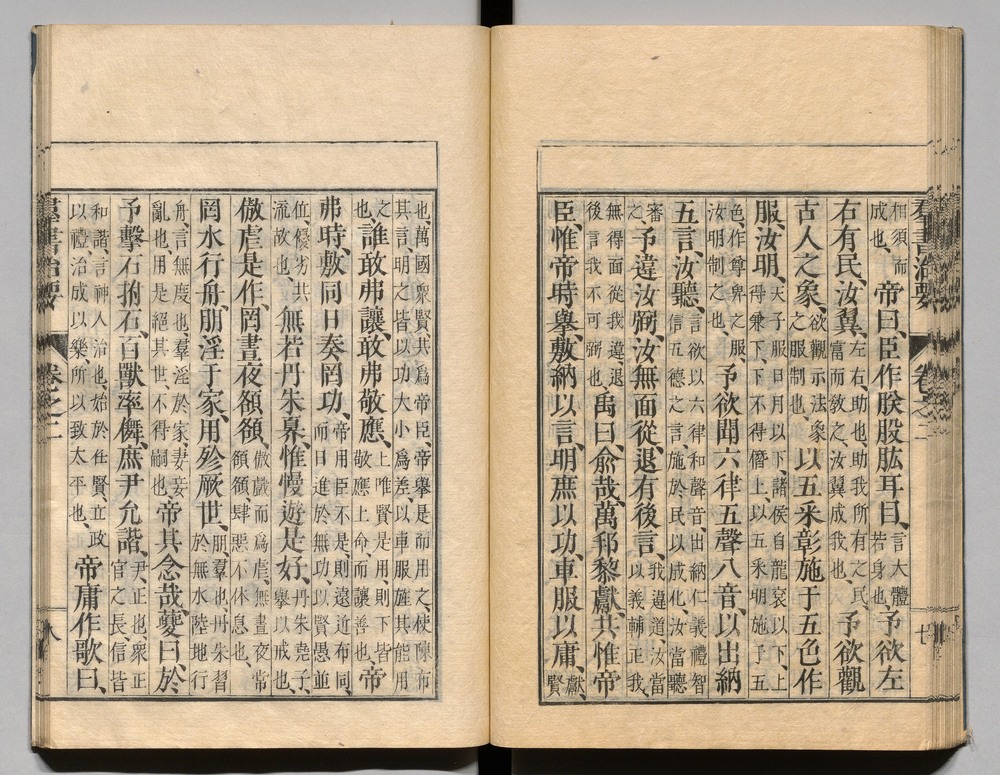 群書治要 卷之二 七
相須而成也、帝曰、臣作朕股肱耳目、言大體若身也、予欲左
右有民、汝翼、左右、助也、助我所有之民、富而敎之、汝翼成我也、予欲觀
古人之象、欲觀示法象之服制也、以五采彰施于五色作
服、汝明、天子服日月以下、諸侯自龍衮以下、上得兼下、下不得僭上、以五采明施于五
色、作尊卑之服、汝明制之也、予欲聞六律五聲八音、以出納
五言、汝聽、言欲以六律和聲音、出納仁義禮智信五德之言、施於民以成化、汝當聽
審之、予違汝弼、汝無面從、退有後言、我違道、汝當以義輔正我、
無得面從我違、退後言我不可弼也、禹曰、俞哉、萬邦黎獻、共惟帝
臣、惟帝時舉、敷納以言、明庶以功、車服以庸、獻、賢
也、萬國衆賢共爲帝臣、帝舉是而用之、使陳布其言、明之皆以功大小爲差、以車服旌其能用
之也、誰敢弗讓、敢弗敬應、上唯賢是用、則下皆敬應上命而讓善也、帝
弗時、敷同日奏罔功、帝用臣不是、則遠近布同而日進於無功、以賢愚並
位、優劣共流故也、無若丹朱奡、惟慢遊是好、丹朱、堯子、舉以戒也、
傲虐是作、罔晝夜頟頟、傲戲而爲虐、無晝夜常頟頟、肆惡不休息也、
罔水行舟、朋淫于家、用殄厥世、朋、羣也、丹朱習於無水陸地行
舟、言無度也、羣淫於家、妻妾亂也、用是絕其世、不得嗣也、帝其念哉、夔曰、於
予擊石拊石、百獸率儛、庶尹允諧、尹、正也、衆正官之長、信皆
和諧、言神人治也、始於任賢立政、以禮、治成以樂、所以致太平也、帝庸作歌曰、
群書治要 卷之二 八